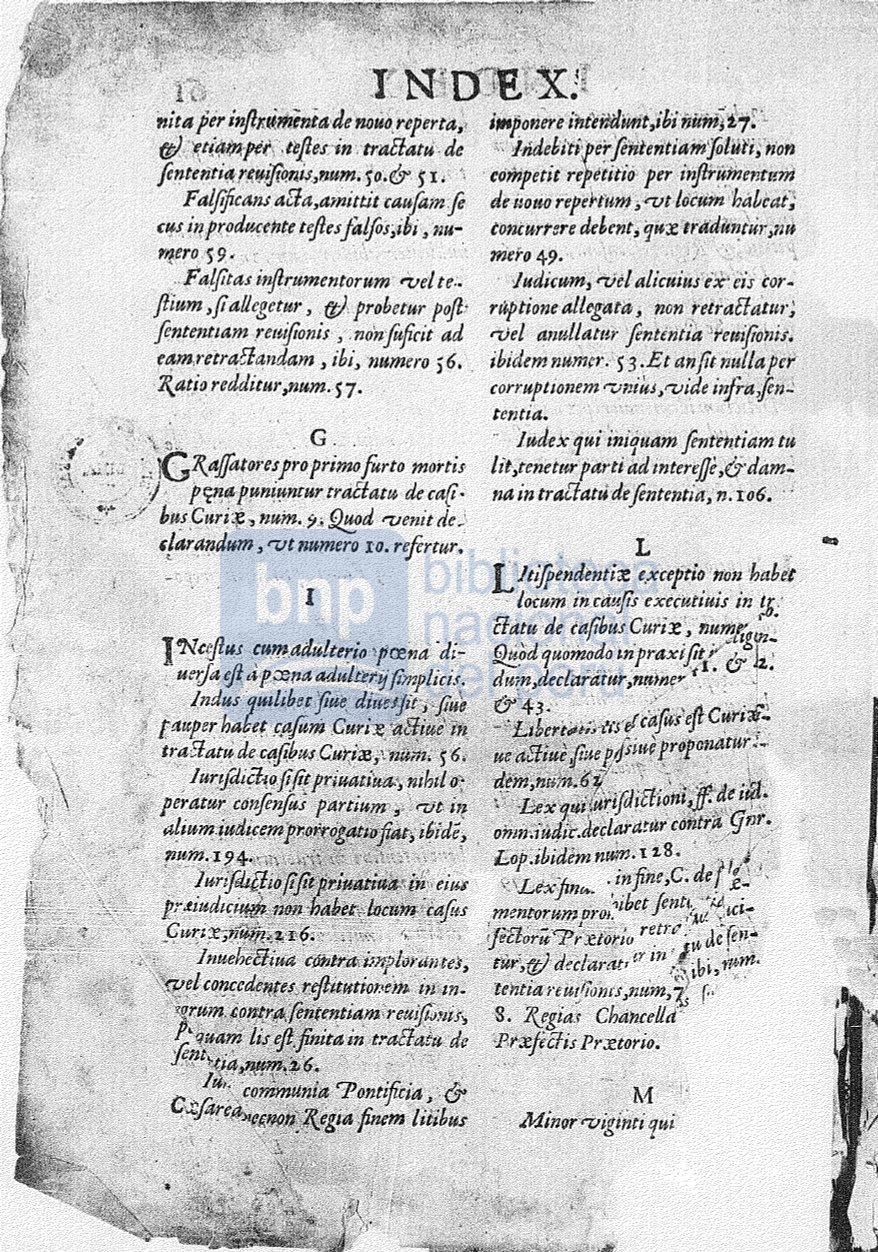 INDEX.
nita per inſtrumenta de nouo reperta,
& etiam per teſtes in tractatu de
ſententia reuiſionis, num. 50. & 51.
Falſificans acta, amittit cauſam ſe
cus in producente teſtes falſos, ibi, nu-
mero 59.
Falſitas inſtrumentorum vel te-
ſtium, ſi allegetur, & probetur poſt
ſententiam reuiſionis, non ſuficit ad
eam retractandam, ibi, numero 56.
Ratio redditur, num. 57.
G
GRaſſatores pro primo furto mortis
pęna puniuntur tractatu de caſi-
bus Curiæ, num. 9. Quod venit de
clarandum, vt numero 10. refertur.
I
INceſtus cum adulterio pœna di-
uerſa eſt à pœna adulterij ſimplicis.
Indus quilibet ſiue diues ſit, ſiue
pauper habet caſum Curiæ actiue in
tractatu de caſibus Curiæ, num. 56.
Iuriſdictio ſi ſit priuatiua, nihil o-
peratur conſenſus partium, vt in
alium iudicem prorrogatio fiat, ibidē,
num. 194.
Iuriſdictio ſi ſit priuatiua in eius
præiudicium non habet locum caſus
Curiæ, num. 216.
Inuehectiua contra implorantes,
vel concedentes reſtitutionem in in-
grum contra ſententiam reuiſionis,
quam lis eſt finita in tractatu de
ſent tia, num. 26.
communia Pontificia, &
Cæſarea necnon Regia finem litibus
imponere intendunt, ibi num, 27.
Indebiti per ſententiam ſoluti, non
competit repetitio per inſtrumentum
de nouo repertum, vt locum habeat,
concurrere debent, quæ traduntur, nu
mero 49.
Iudicum, vel alicuius ex eis cor-
ruptione allegata, non retractatur,
vel anullatur ſententia reuiſionis.
ibidem numer. 53. Et an ſit nulla per
corruptionem vnius, vide infra, ſen-
tentia.
Iudex qui iniquam ſententiam tu
lit, tenetur parti ad intereſſe, & dam-
na in tractatu de ſententia, n. 106.
L
LItiſpendentiæ exceptio non habet
locum in cauſis executiuis in tr
ctatu de caſibus Curiæ, nume
Quòd quomodo in praxi ſit
dum, declaratur, numer 1. & 2.
& 43.
caſus eſt Curiæ
ue actiuè, ſiue paſſiue proponatur
dem, num. 62
Lex qui iuriſdictioni, ff. de iud.
omn. iudic. declaratur contra Gnr.
Lop. ibidem num. 128.
Lex fina. in fine, C. de
mentorum ibet ſent
ſectorū Prætorio retro
tur, & declarat er in tu de ſen-
tentia reuiſionis, num, 7 ibi, num.
8. Regias Chancella
Præfectis Prætorio.
M
Minor viginti qui
bnp
biblioteca
nacional
del perú